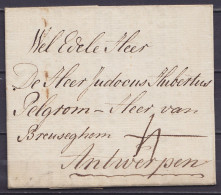 Wel Edele Heer
De Heer Judocus Hubertus
Pelgrom - Heer van
Breuseghem
Antwerpen